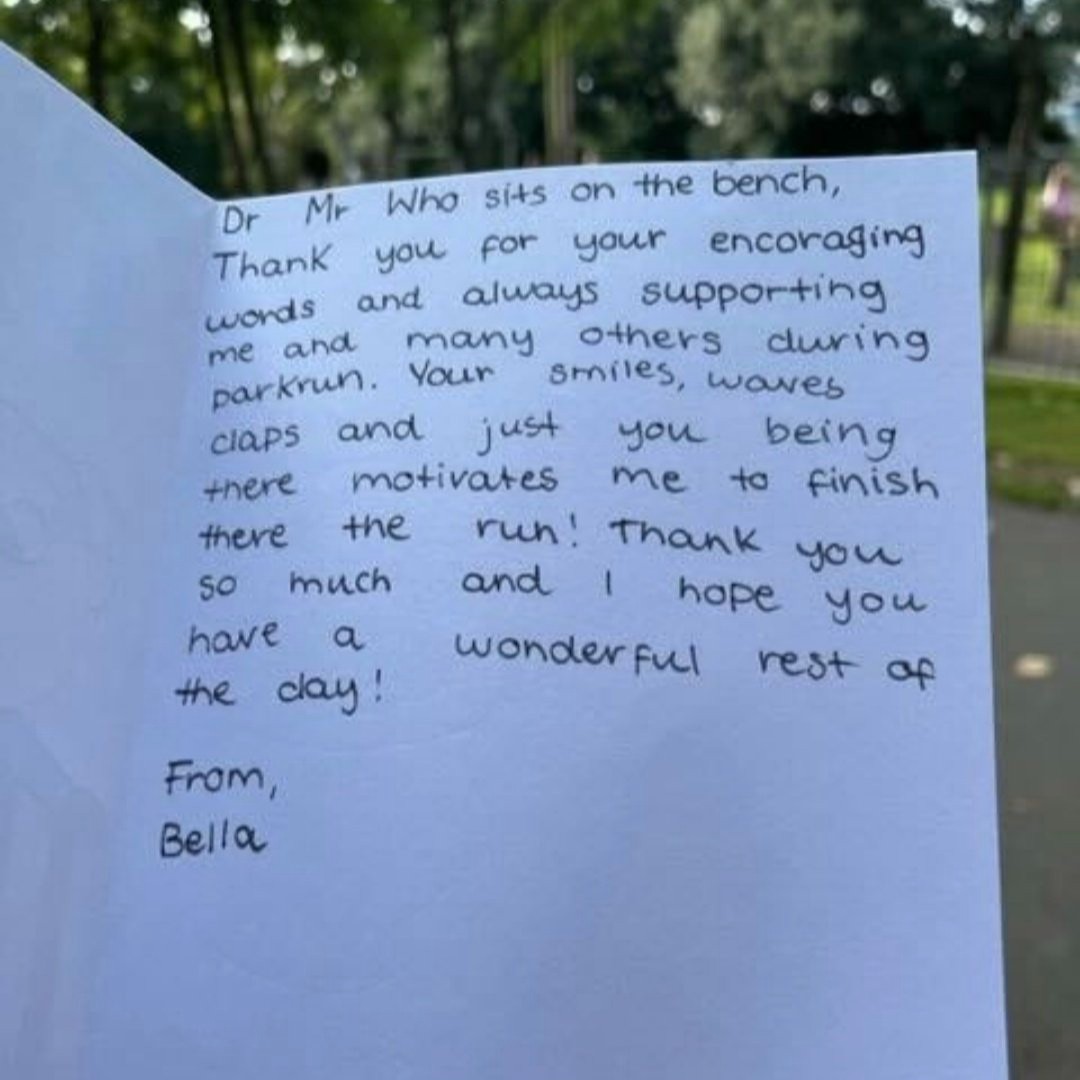 Dr Mr Who sits on the bench,
Thank you for your encoraging
words and always supporting
me and many others during
parkrun. Your smiles, waves
claps and just you being
there motivates me to finish
there the run! Thank you
so much and I hope you
have a wonderful rest of
the day!
From,
Bella